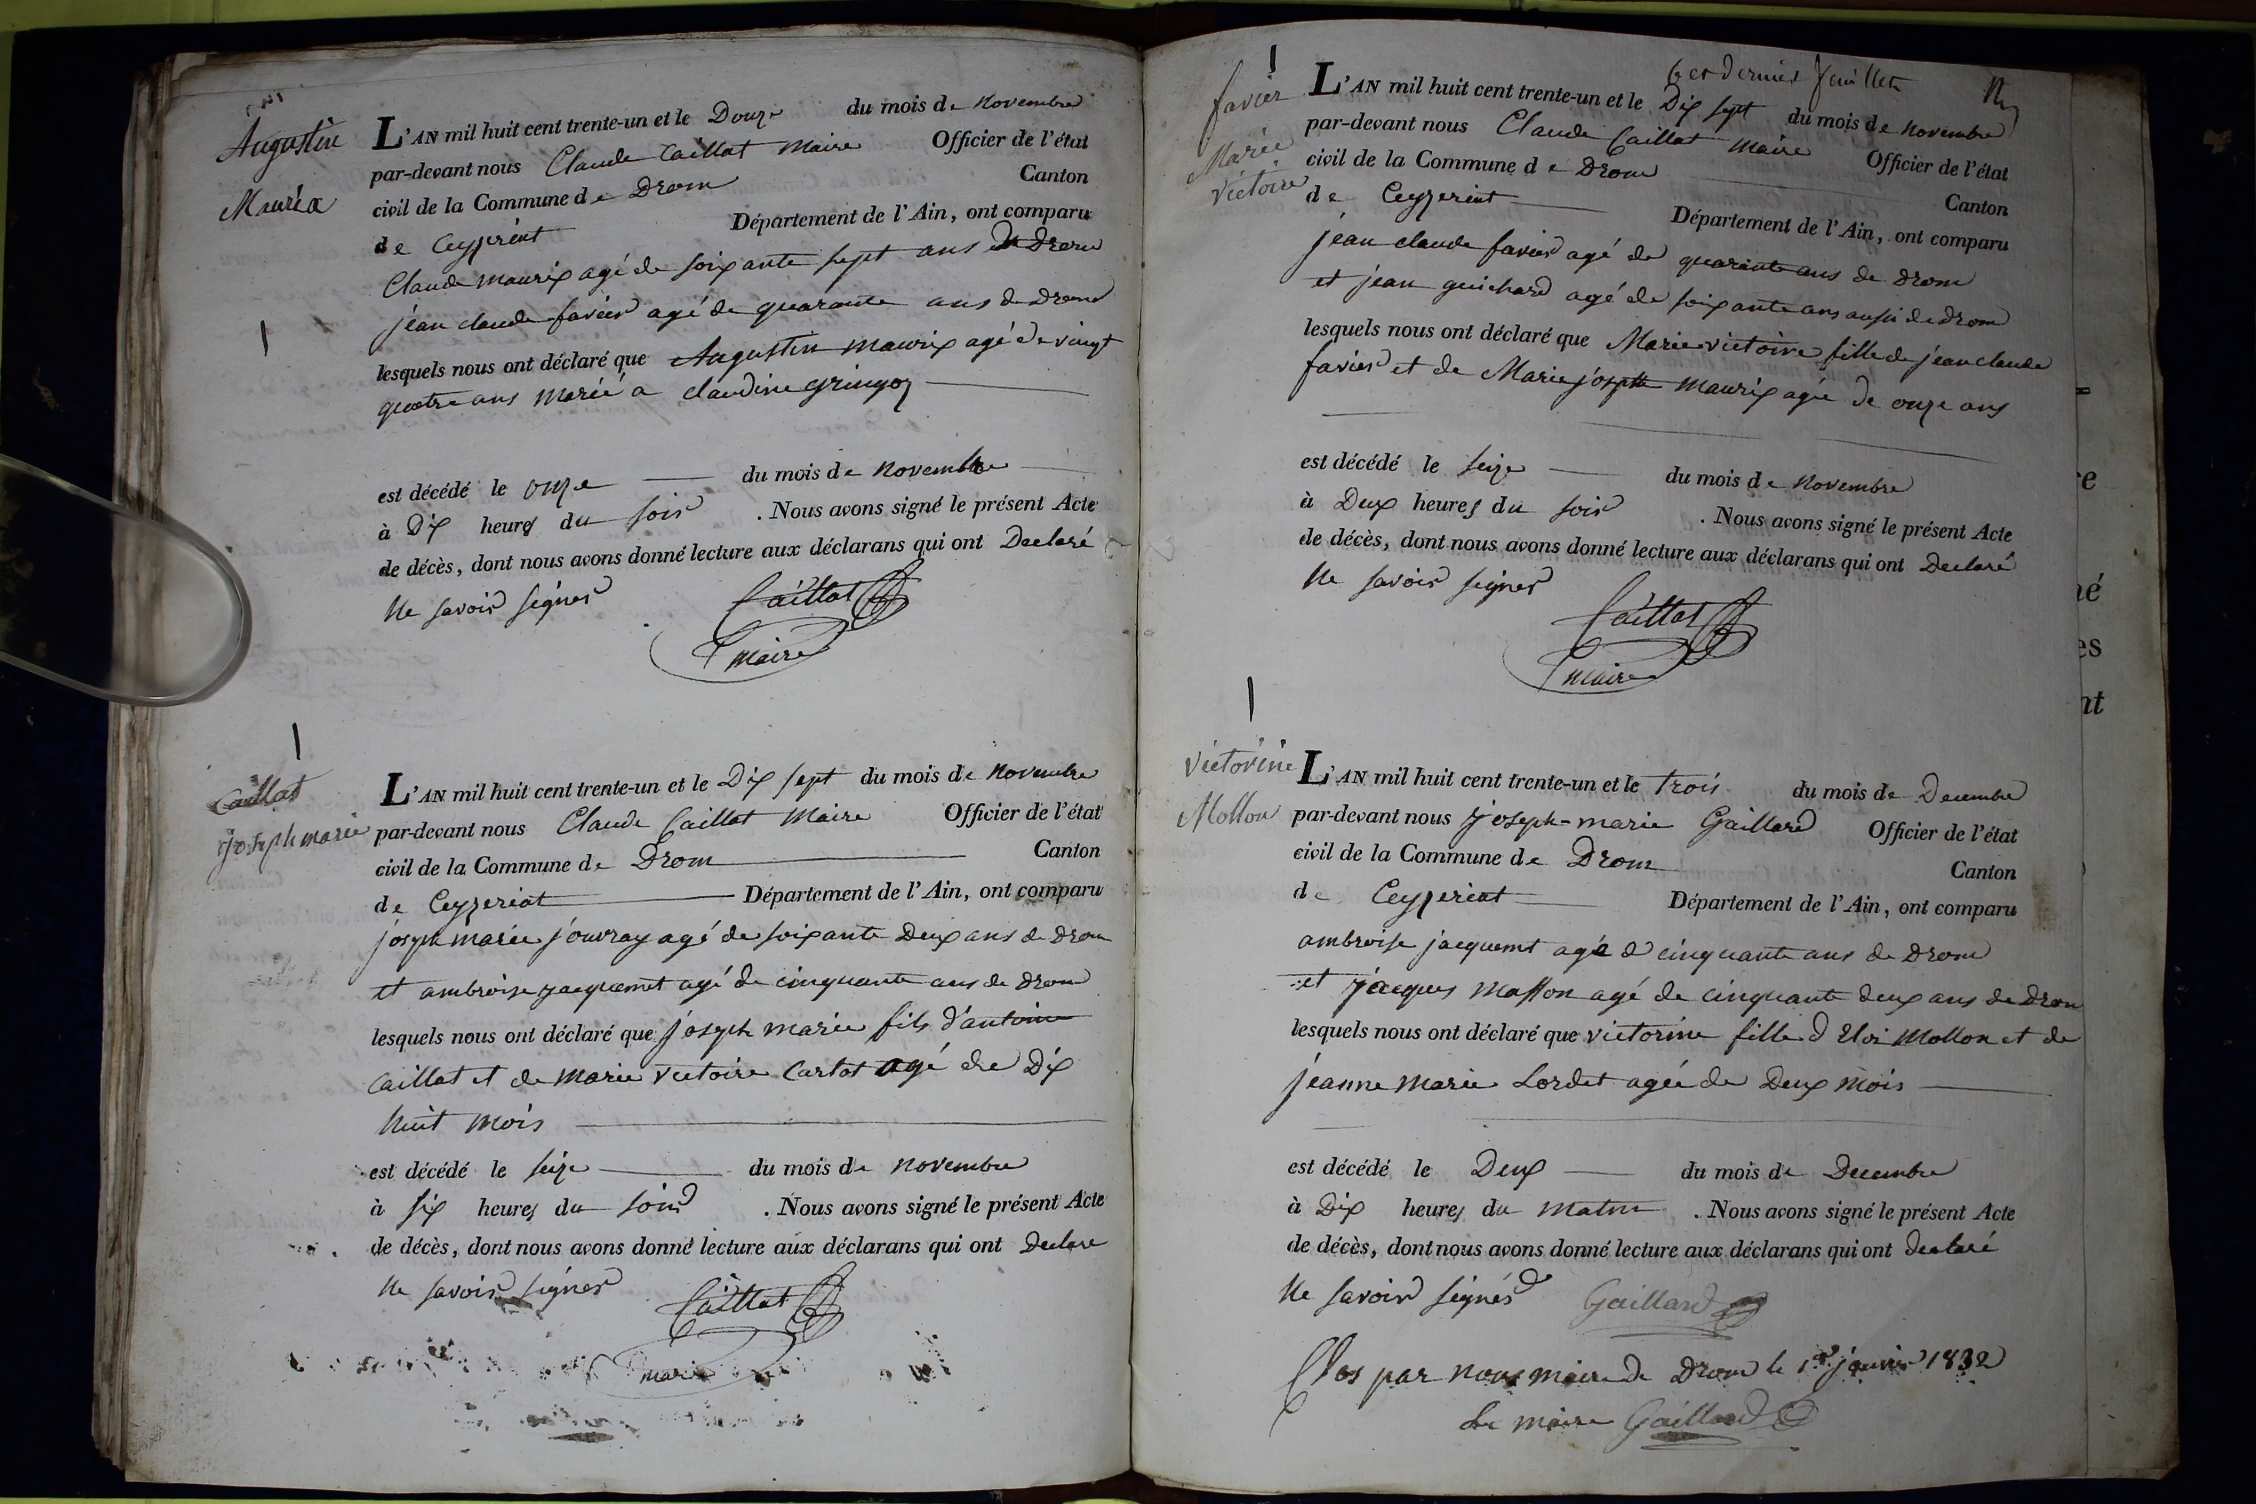 Augustin
Maurix
L'AN mil huit cent trente-un et le Douze du mois de novembre
par-devant nous Claude Caillat Maire Officier de l'état
civil de la Commune de Drom Canton
de Ceyzeriat Département de l'Ain, ont comparu
Claude maurix agé de soixante sept ans de Drom
jean claude favier agé de quarante ans de Drom
lesquels nous ont déclaré que Augustin maurix agé de vingt
quatre ans marié a claudine gringoz
est décédé le onze du mois de novembre
à Dix heures du soir . Nous avons signé le présent Acte
de décès, dont nous avons donné lecture aux déclarans qui ont Declaré
Ne savoir signer
Caillat
maire
Caillat
joseph marie
L'AN mil huit cent trente-un et le Dix sept du mois de novembre
par-devant nous Claude Caillat Maire Officier de l'état
civil de la Commune de Drom Canton
de Ceyzeriat Département de l'Ain, ont comparu
joseph marie jouvray agé de soixante Deux ans de Drom
et ambroise jacquemet agé de cinquante ans de Drom
lesquels nous ont déclaré que joseph marie fils d'antoine
caillat et de marie victoire Cartot agé de Dix
huit mois
est décédé le seize du mois de novembre
à six heures du soir . Nous avons signé le présent Acte
de décès, dont nous avons donné lecture aux déclarans qui ont Declare
Ne savoir signer
Caillat
maire
6 et dernier feuillet
favier
Marie
victoire
L'AN mil huit cent trente-un et le Dix sept du mois de novembre
par-devant nous Claude Caillat maire Officier de l'état
civil de la Commune de Drom Canton
de Ceyzeriat Département de l'Ain, ont comparu
jean claude favier agé de quarante ans de Drom
et jean guichard agé de soixante ans aussi de Drom
lesquels nous ont déclaré que Marie victoire fille de jean claude
favier et de Marie josephte maurix agée de onze ans
est décédé le seize du mois de novembre
à Deux heures du soir . Nous avons signé le présent Acte
de décès, dont nous avons donné lecture aux déclarans qui ont Declaré
Ne savoir signer
Caillat
maire
victorine
Mollon
L'AN mil huit cent trente-un et le trois du mois de Decembre
par-devant nous joseph-marie Gaillard Officier de l'état
civil de la Commune de Drom Canton
de Ceyzeriat Département de l'Ain, ont comparu
ambroise jacquemt agé d cinquante ans de Drom
et jacques maffon agé de cinquante deux ans de Drom
lesquels nous ont déclaré que victorine fille d Eloi Mollon et de
jeanne marie Lordet agée de Deux mois
est décédé le Deux du mois de Decembre
à Dix heures du matin . Nous avons signé le présent Acte
de décès, dont nous avons donné lecture aux déclarans qui ont declaré
Ne savoir signer Gaillard
Clos par nous maire de Drom le 1er janvier 1832
Le maire Gaillard